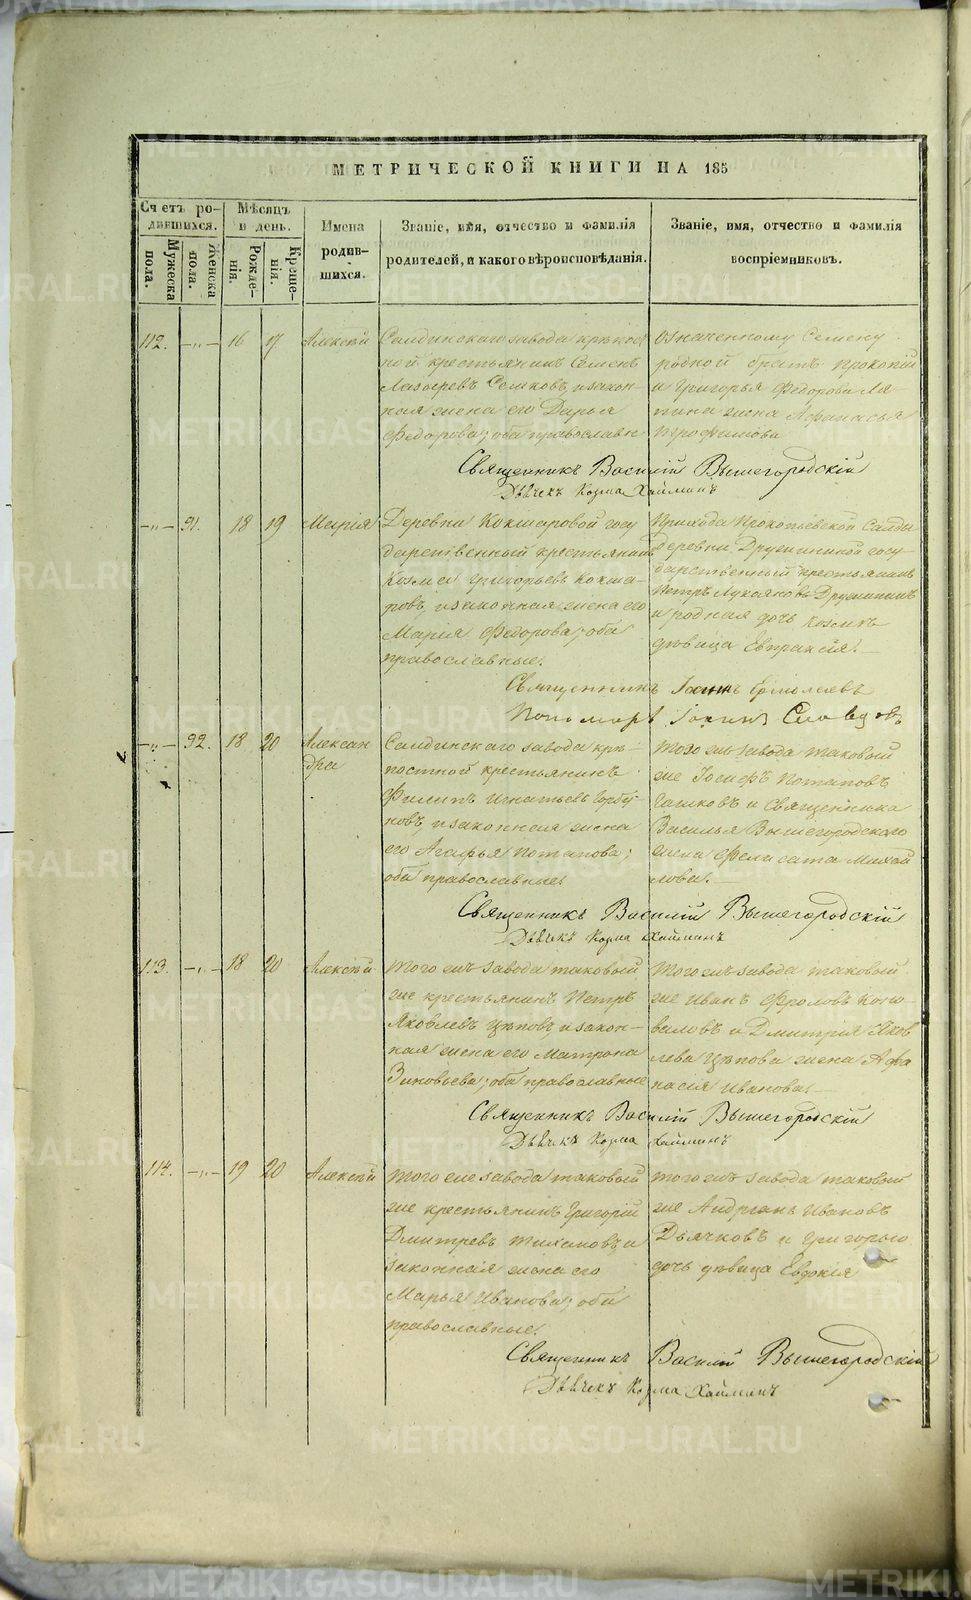 МЕТРИЧЕСКОЙ КНИГИ НА 185
Счетъ ро-
дившихся.
Мѣсяцъ
и день.
Имена
родив-
шихся.
Званіе, имя, отчество и фамилія
родителей, и какого вѣроисповѣданія.
Званіе, имя, отчество и фамилія
воспріемниковъ.
Мужеска
пола.
Женска
пола.
Рожде-
нія.
Креще-
нія.
112. -„- 16 17 Алексѣй
Салдинскаго завода крѣпос
ной крестьянинъ Семенъ
Лазаревъ Семковъ, и закон-
ная жена его Дарья
Федорова; оба православн
означенному Семену
родной братъ Прокопій
и Григорья Федорова Ля
пина жена Афанасья
Трофимова
Священникъ Василій Вышегородскій
Дьячекъ Козма Хайминъ
-„- 91. 18 19 Марія
Деревни Кокшаровой госу
дарственный крестьянинъ
Козма Григорьевъ Кокша-
ровъ, и законная жена его
Марія Федорова; оба
православные.
Прихода Прокопьевской Салды
деревни Дружининой госу-
дарственный крестьянинъ
Петръ Лукояновъ Дружининъ
и родная дочь Козмы
дѣвица Евпраксія.
Священникъ Іоаннъ Ермолаевъ
Пономарь Іоаннъ Словцовъ
-„- 92. 18 20 Алексан
дра
Салдинскаго завода крѣ-
постной крестьянинъ
Филипъ Игнатьевъ Горбу-
новъ, и законная жена
его Агафья Потапова;
оба православные.
Того же завода таковый
же Іосифъ Потаповъ
Гашковъ и Священника
Василья Вышегородскаго
жена Фелисата Михай
лова.
Священникъ Василій Вышегородскій
Дьячекъ Козма Хайминъ
113. -„- 18 20 Алексѣй
Того же завода таковый
же крестьянинъ Петръ
Яковлевъ Цѣповъ, и закон-
ная жена его Матрона
Зиновьева; оба православные
Того же завода таковый
же Иванъ Фроловъ Коно-
валовъ и Дмитрія Яков
лева Цѣпова жена Афа
насія Иванова.
Священникъ Василій Вышегородскій
Дьячекъ Козма Хайминъ
114. -„- 19 20 Алексѣй
Того же завода таковый
же крестьянинъ Григорій
Дмитревъ Тихановъ, и
законная жена его
Марья Иванова; оба
православные.
Того же завода таковый
же Андріянъ Ивановъ
Дьячковъ и Григорью
дочь дѣвица Евдокія
Священникъ Василій Вышегородскій
Дьячекъ Козма Хайминъ
METRIKI.GASO-URAL.RU